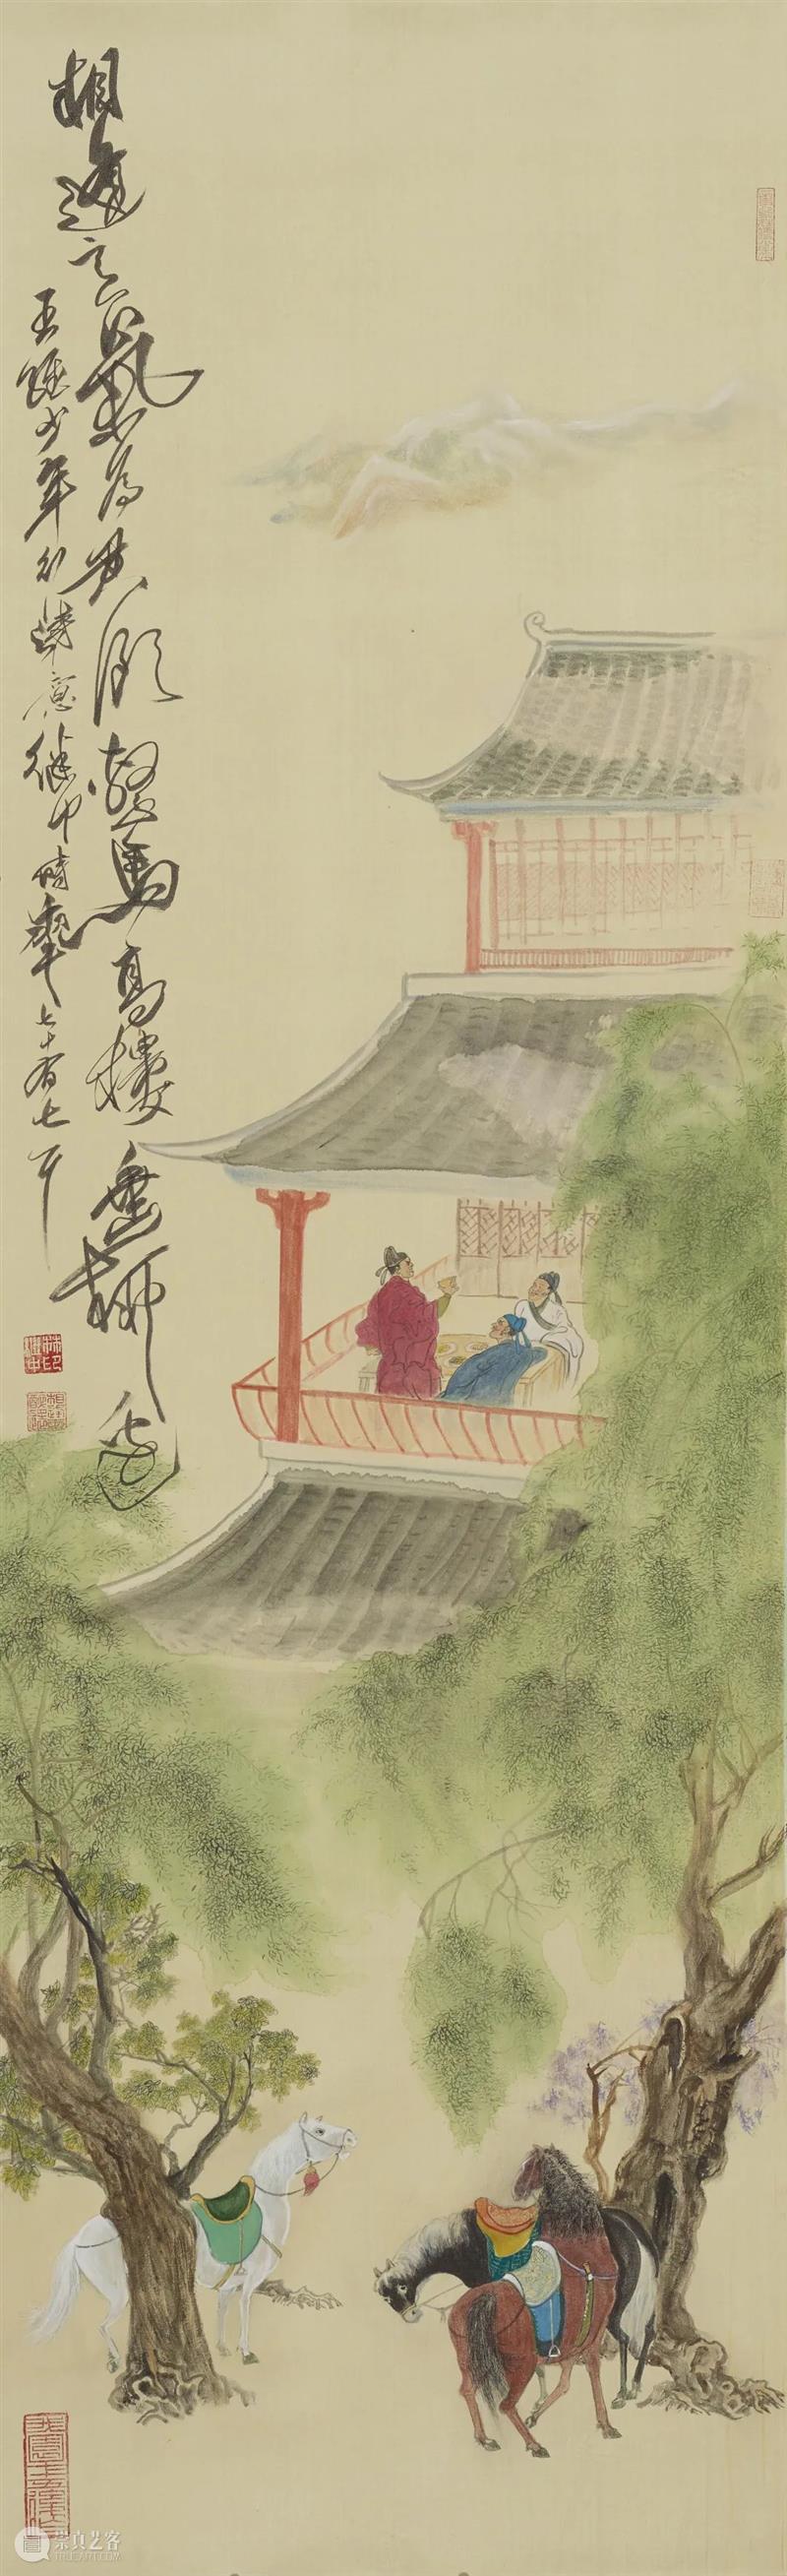 相逢意氣為君飲繫馬高樓垂柳邊
王維少年行詩意繼中時年七十有七
林印繼中
崇真艺客